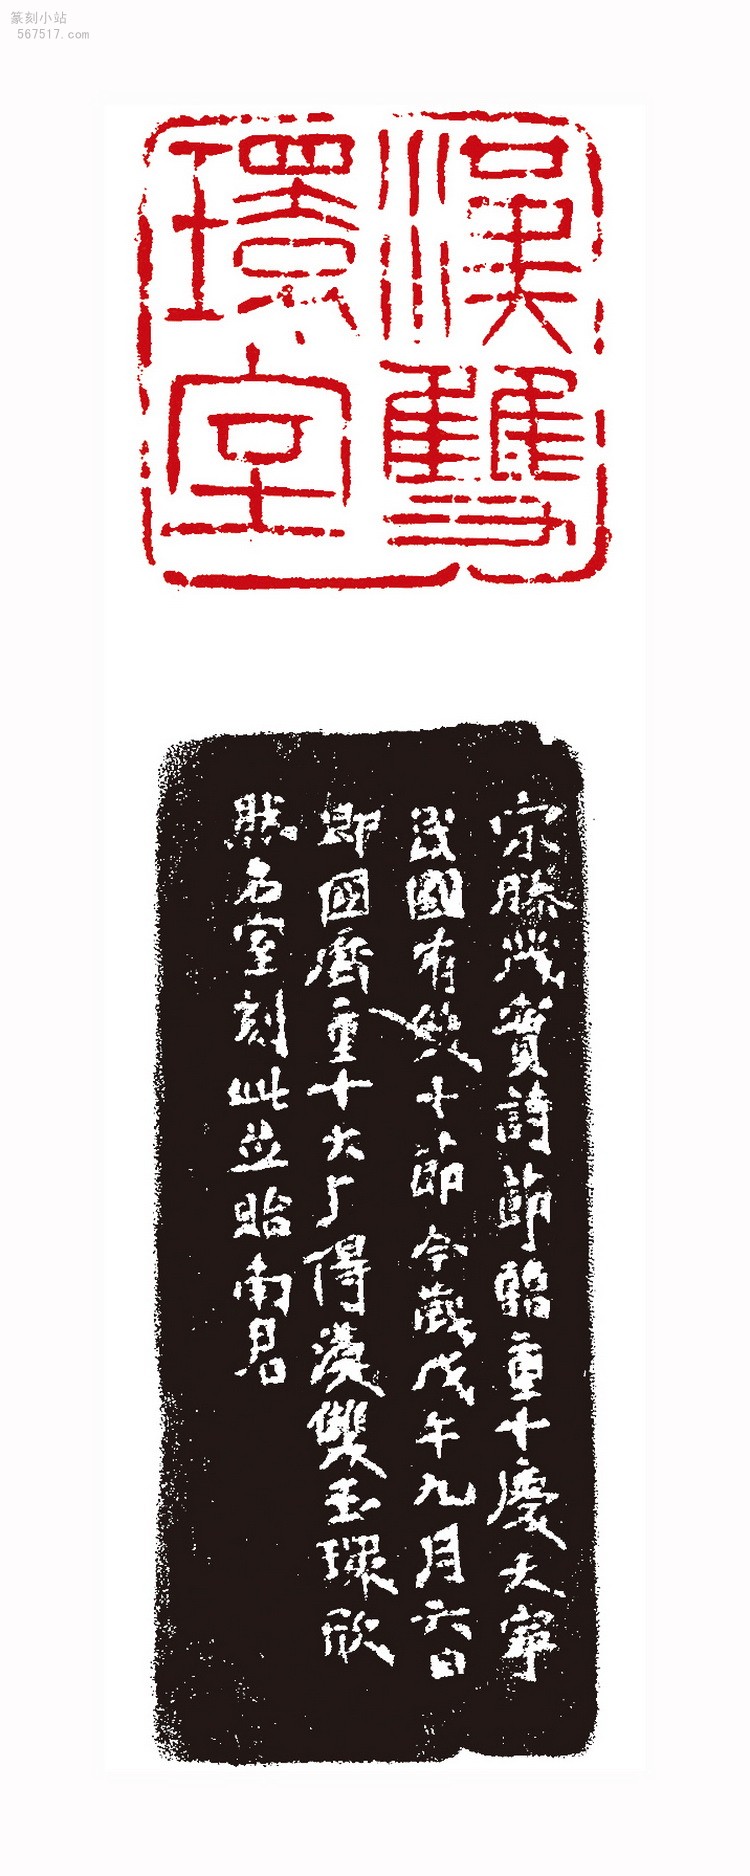 篆刻小站
567517.com
漢雙
環室
宋滕茂實詩節臨重十慶天寧
民國有雙十節今歲戊午九月六日
即國曆重十大厂得漢雙玉環欣
然名室刻此並貽南君